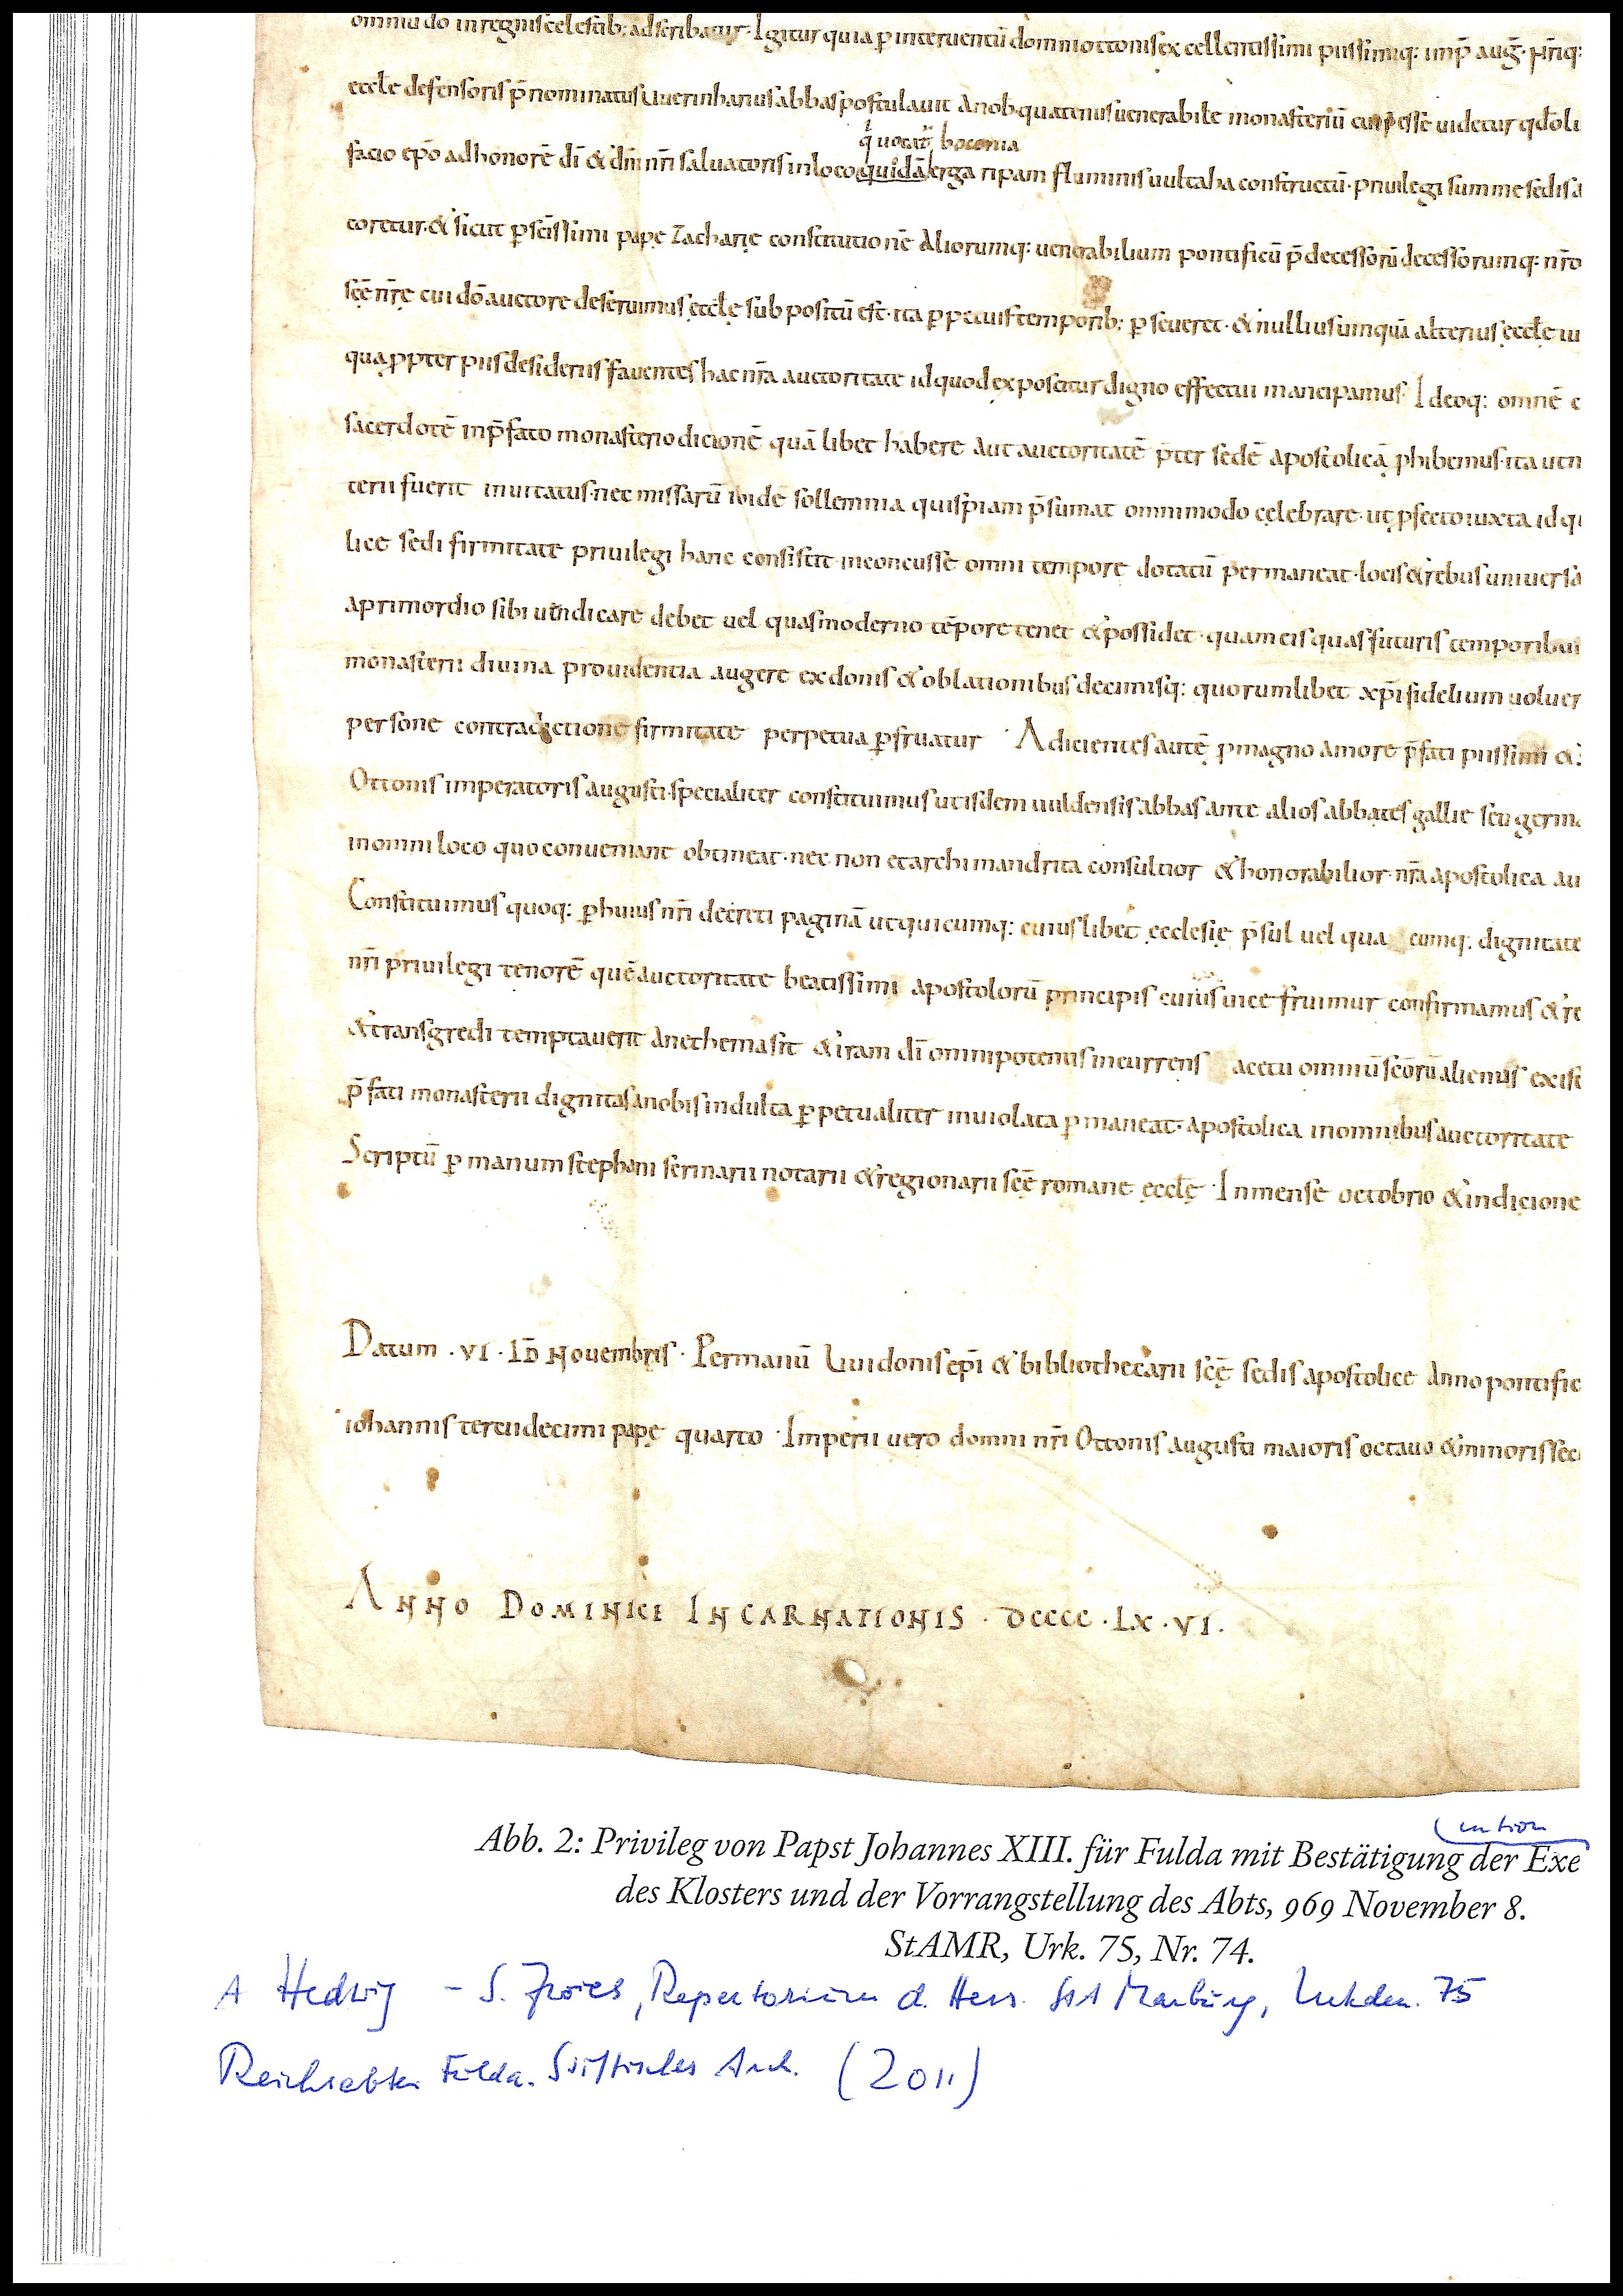 omniu do in regnis cęlestib; adscribatur. Igitur quia p̱ interuentū domni ottonis excellentissimi piissimiq; imp̄ aug̃.
ecclę defensoris p̄nominatus uuerinharius abbas postulauit a nob quatenus uenerabile monasteriū cui p̄esse uidetur qd̄ oli
q̇ uocat̃ boconia
facio ep̄o ad honorē dī & dn̄i nr̄i saluatoris in loco quodā erga ripam fluminis uultaha constructū. priuilegi summe sedis a
coretur. & sicut p̱ sc̄issimi papę Zacharię constitutionē Aliorumq; uenerabilium pontificū p̄decessorū decessorumq; nr̄o
sc̄ę nr̄ę cui dō auctore deseruimus ęcclę sub positū est. ita p̱petuis temporib; p̱seueret. & nullius umquā alterius ęcclę iu
qua p̱pter piis desideriis fauentes hac nr̄a auctoritate id quod exposcitur digno effectui mancipamus. Ideoq; omnē c
sacerdotē in p̄fato monasterio dicionē quā libet habere aut auctoritatē p̄ter sedē apostolicā p̱hibemus. ita ut n
terii fuerit inuitatus. nec missarū ibidē sollemnia quispiam p̄sumat omnimodo cęlebrare. ut p̱fecto iuxta id q
lice sedi firmitate priuilegi hanc consistit inconcusse omni tempore dotatū permaneat. locis & rebus uniuersa
a primordio sibi uendicare debet uel quas moderno tēpore tenet & possidet. quam eis quas futuris temporibus
monasterii diuina prouidentia augere ex donis & oblationibus decimisq; quorumlibet xp̄i fidelium uoluer
persone contradictione firmitate perpetua p̱fruatur. Adicientes autē p̱ magno amore p̄fati piissimi &
Ottonis imperatoris augusti. specialiter constituimus ut isdem uuldensis abbas ante alios abbates gallie seu germa
in omni loco quo conueniant obtineat. nec non et archimandrita consultior & honorabilior. nr̄a apostolica au
Constituimus quoq; p̱ huius nr̄i decreti paginā ut quicumq; cuius libet ęcclesię p̄sul uel qua cumq; dignitate
nr̄i priuilegi tenorē quē auctoritate beatissimi apostolorū principis cuius uice fruimur confirmamus & re
& transgredi temptauerit anethema sit & iram dī omnipotentis incurrens a cetu omniū sc̄orū alienus exist
p̄fati monasterii dignitas a nobis indulta p̱petualiter inuiolata p̱maneat. apostolica in omnibus auctoritate
Scriptū p̱ manum stephani scriniarii notarii & regionarii sc̄ę romane ęcclę. In mense octobrio & indicione
Datum . VI . ID̄ Nouembris. Per manū Uuidonis ep̄i & bibliothecarii sc̄ę sedis apostolice Anno pontific
iohannis tertii decimi papę quarto. Imperii uero domni nr̄i Ottonis augusti maioris octauo & minoris sec
ANNO DOMINICE INCARNATIONIS . DCCCC . LX . VI .
(mtion
Abb. 2: Privileg von Papst Johannes XIII. für Fulda mit Bestätigung der Exe
des Klosters und der Vorrangstellung des Abts, 969 November 8.
StAMR, Urk. 75, Nr. 74.
A Hedwig – S. Zwies, Repertorium d. Hess. StA Marburg, Urkden. 75
Reichsabtei Fulda. Stiftisches Arch. (2011)